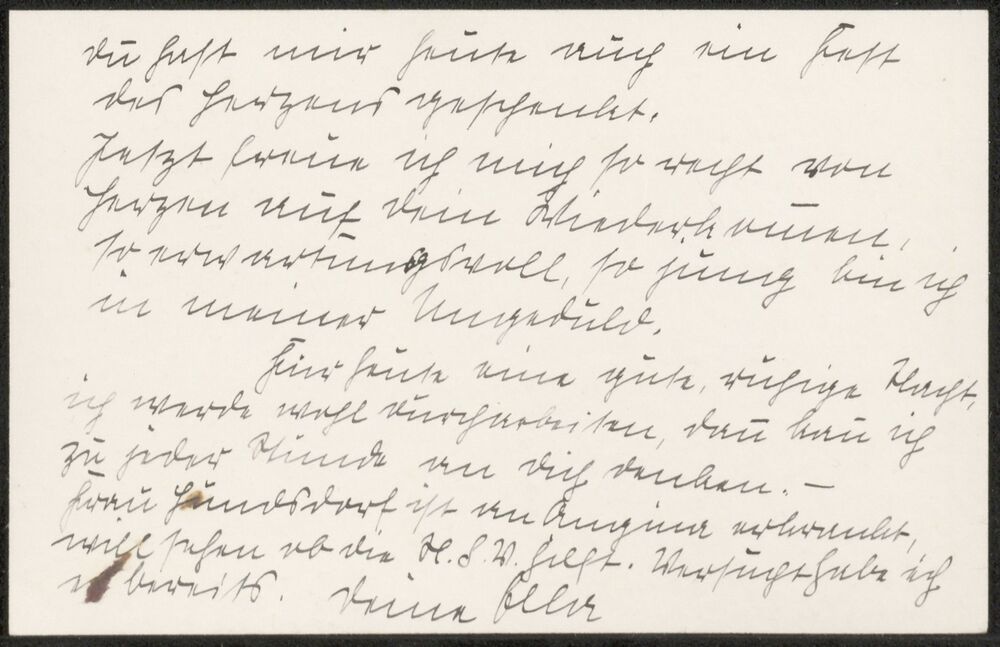 du hast mir heute auch ein Fest
des Herzens geschenkt.
Jetzt freue ich mich so recht von
Herzen auf dein Wiederkommen,
so erwartungsvoll, so jung bin ich
in meiner Ungeduld.
Für heute eine gute, ruhige Nacht,
ich werde wohl durcharbeiten, dan̄ kan̄ ich
zu jeder Stunde an dich denken. –
Frau Hundsdorf ist an Angina erkrankt,
will sehen ob die N.S.V. hilft. Versucht habe ich
es bereits. Deine Ella